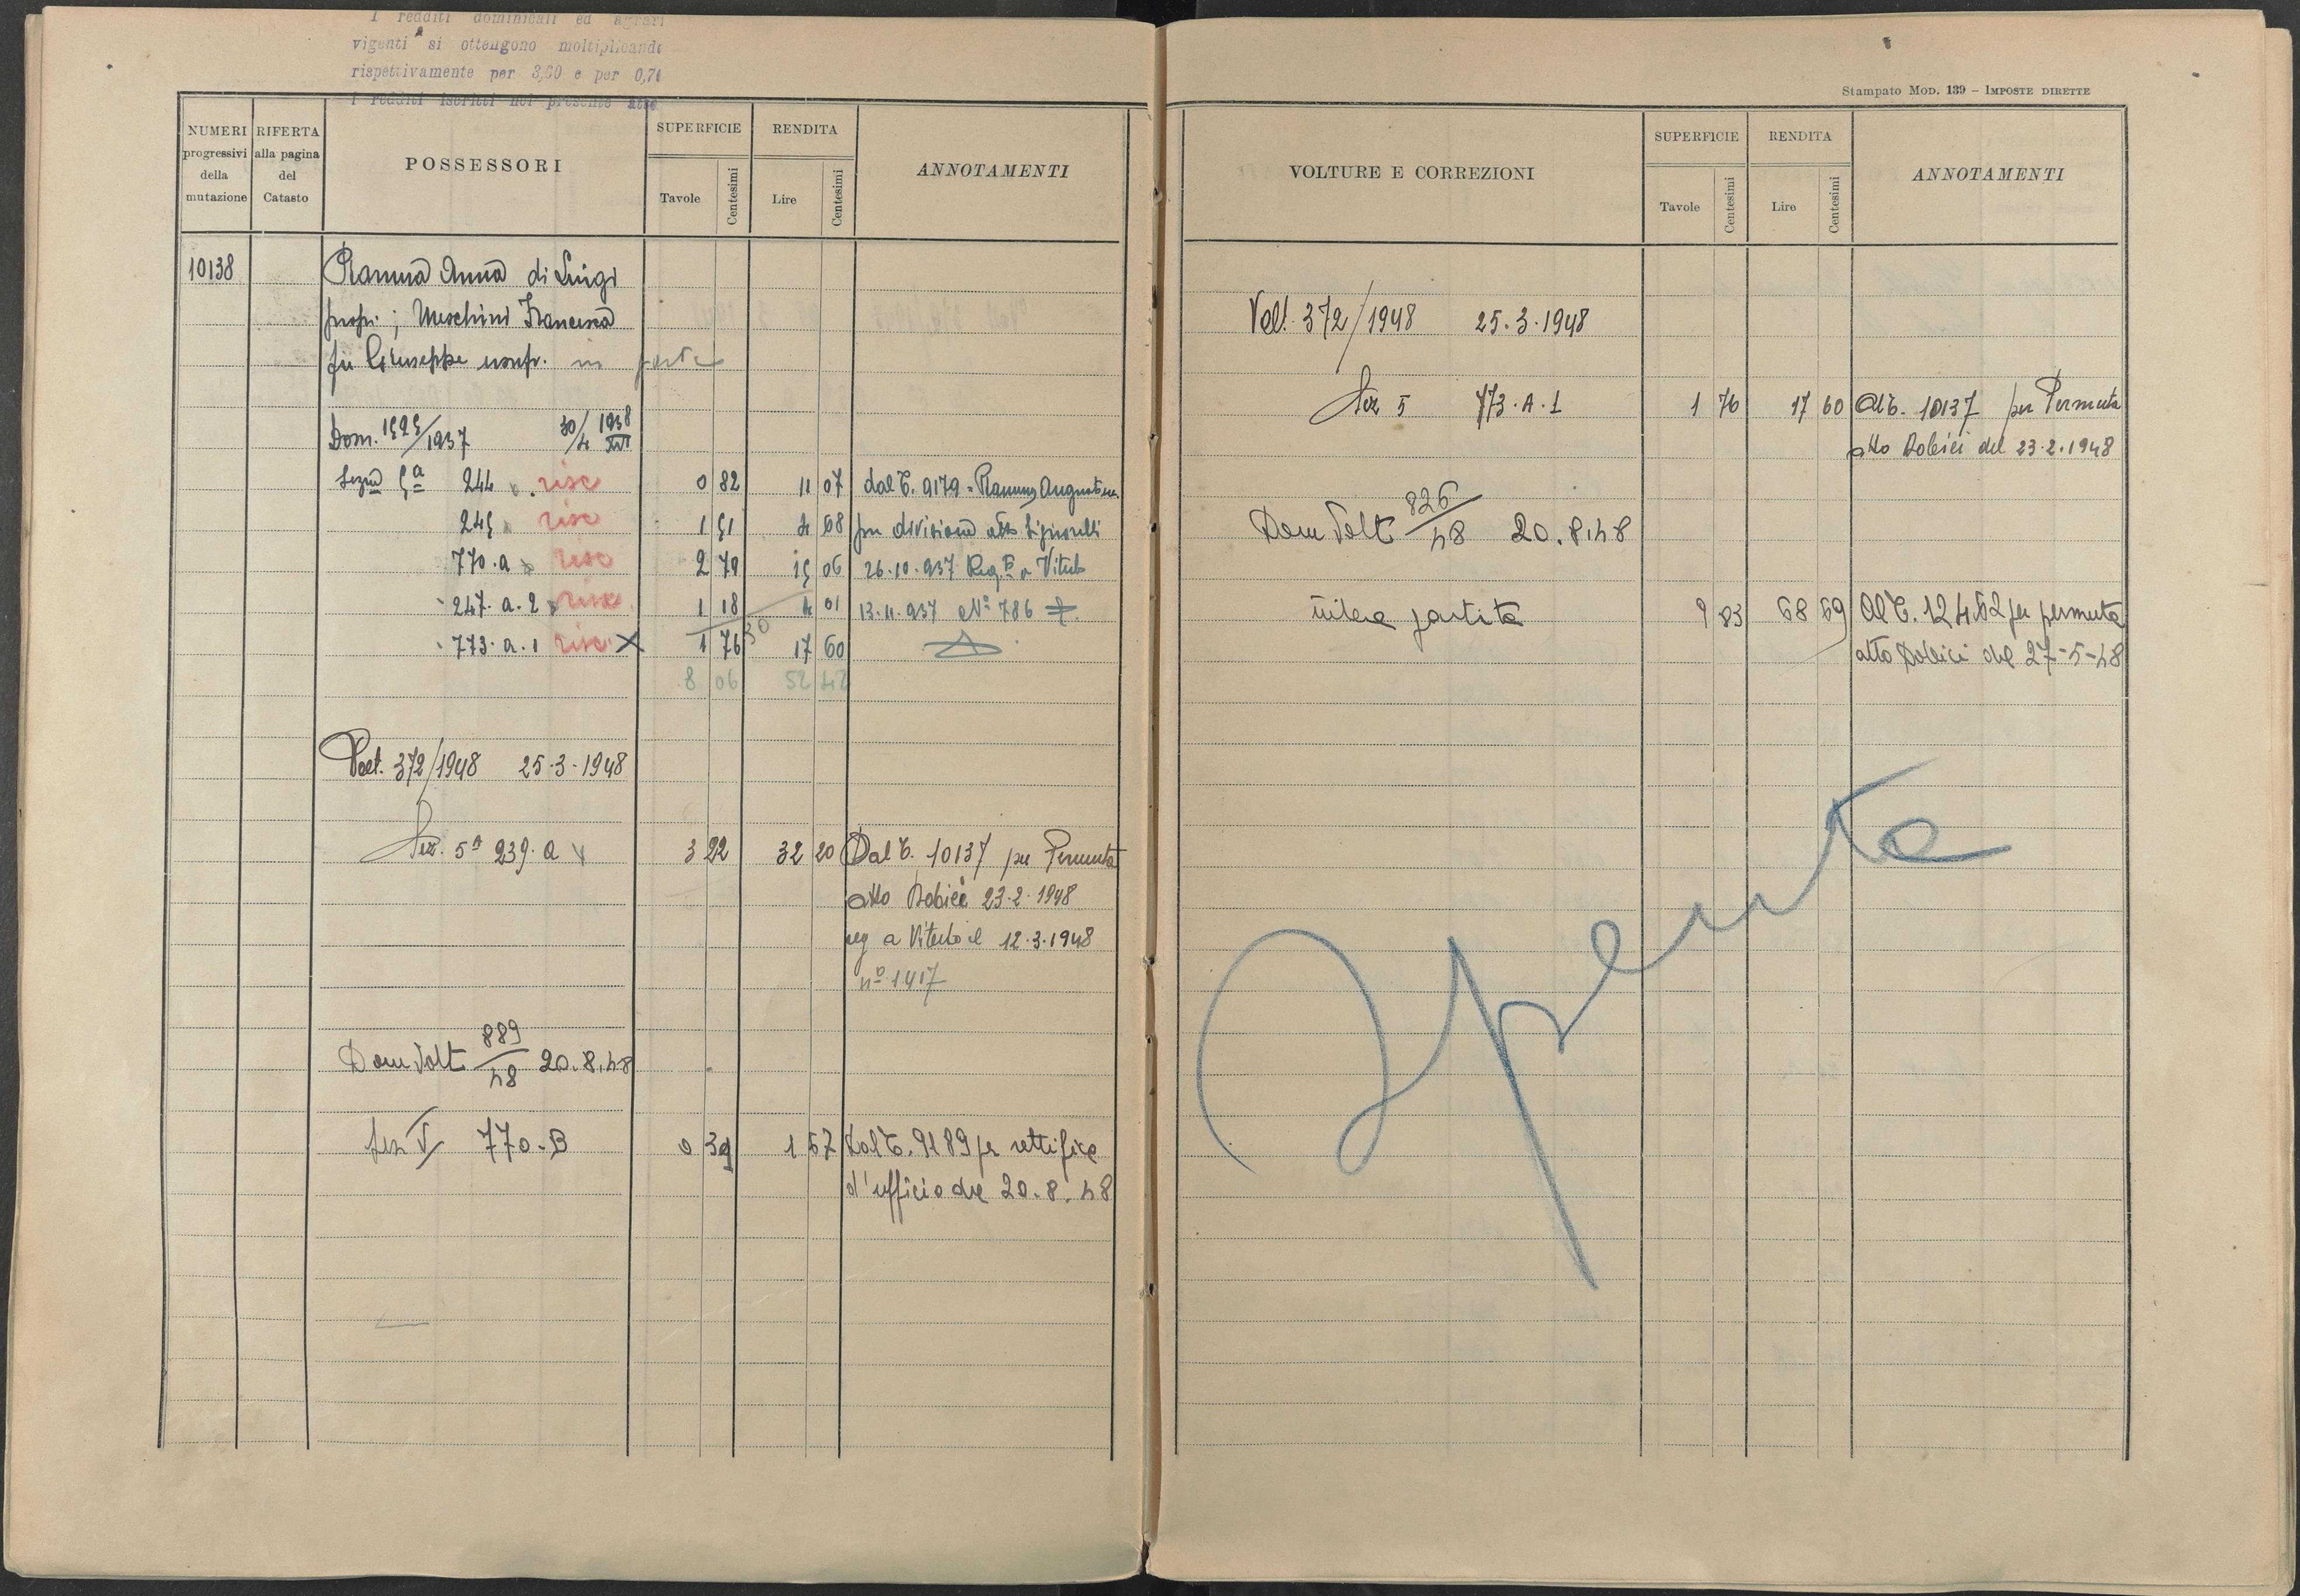 I redditi dominicali ed agrari
vigenti si ottengono moltiplicando
rispettivamente per 3,60 e per 0,70
i redditi iscritti nel presente atto
NUMERI progressivi della mutazione
RIFERTA alla pagina del Catasto
POSSESSORI
SUPERFICIE
Tavole Centesimi
RENDITA
Lire Centesimi
ANNOTAMENTI
10138 Ranucci Anna di Luigi
propr.; Meschini Francesca
fu Giuseppe usufr. in parte
Dom. 1525/1937 30/4 1938 XVI
Sezne 5a 244 risc 0 82 11 07 dal C. 9179 = Ranucci
245 risc 1 51 4 68 per divisione atto Signorelli
770.a risc 2 79 15 06 26.10.937 Reg.to a Viterbo
247.a.2 risc 1 18 4 01 13.11.937 No 786
773.a.1 risc X 1 76 17 60
8 06 52 42
Volt. 372/1948 25.3.1948
Sez. 5a 239.a 3 22 32 20 Dal C. 10137 per Permuta
atto Dobici 23.2.1948
reg a Viterbo il 12.3.1948
no 1417
Dom Volt 889/48 20.8.48
Sez V 770-B 0 39 1 67 Dal C. 9189 per rettifica
d'ufficio del 20.8.48
Stampato MOD. 139 - IMPOSTE DIRETTE
VOLTURE E CORREZIONI
SUPERFICIE
Tavole Centesimi
RENDITA
Lire Centesimi
ANNOTAMENTI
Volt. 372/1948 25.3.1948
Sez 5 773.A.1 1 76 17 60 Al C. 10137 per Permuta
atto Dobici del 23.2.1948
Dom Volt 826/48 20.8.48
intera partita 9 83 68 69 Al C. 12462 per permuta
atto Dobici del 27-5-48
Spenta